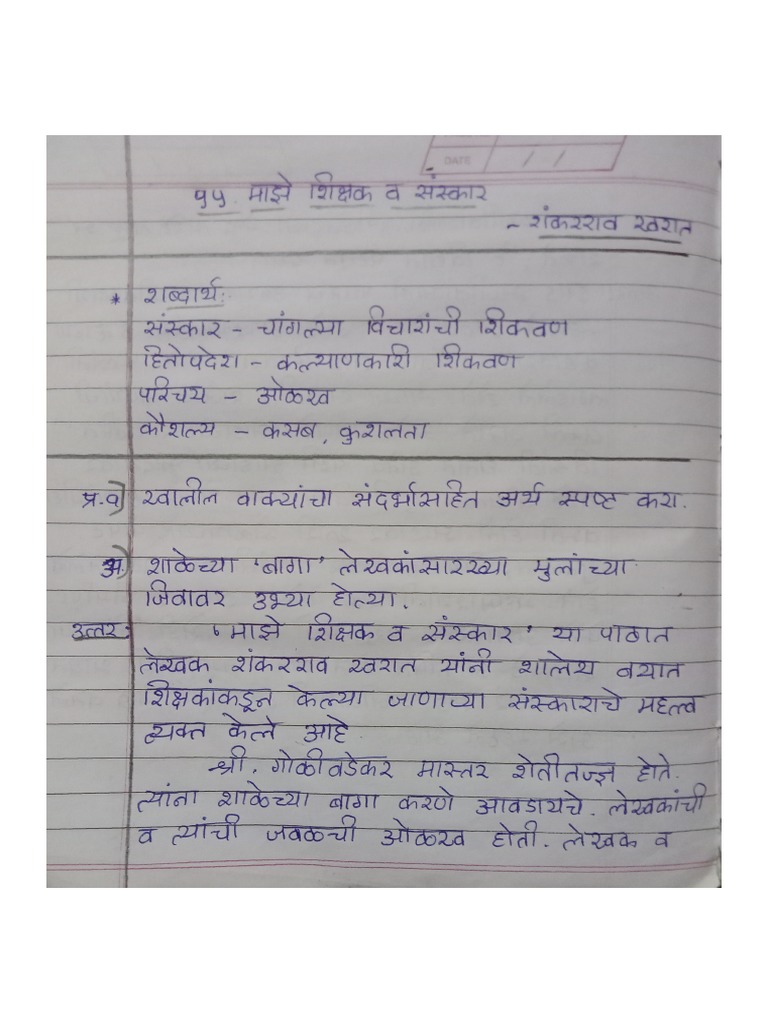 DATE / /
१५. माझे शिक्षक व संस्कार
- शंकरराव खरात
* शब्दार्थ:
संस्कार - चांगल्या विचारांची शिकवण
हितोपदेश - कल्याणकारी शिकवण
परिचय - ओळख
कौशल्य - कसब, कुशलता
प्र.१) खालील वाक्यांचा संदर्भासहित अर्थ स्पष्ट करा.
अ) शाळेच्या 'बागा' लेखकांसारख्या मुलांच्या
जिवावर उभ्या होत्या.
उत्तर: 'माझे शिक्षक व संस्कार' या पाठात
लेखक शंकरराव खरात यांनी शालेय वयात
शिक्षकांकडून केल्या जाणाऱ्या संस्काराचे महत्त्व
व्यक्त केले आहे.
श्री. गोळीवडेकर मास्तर शेतीतज्ज्ञ होते.
त्यांना शाळेच्या बागा करणे आवडायचे. लेखकांची
व त्यांची जवळची ओळख होती. लेखक व